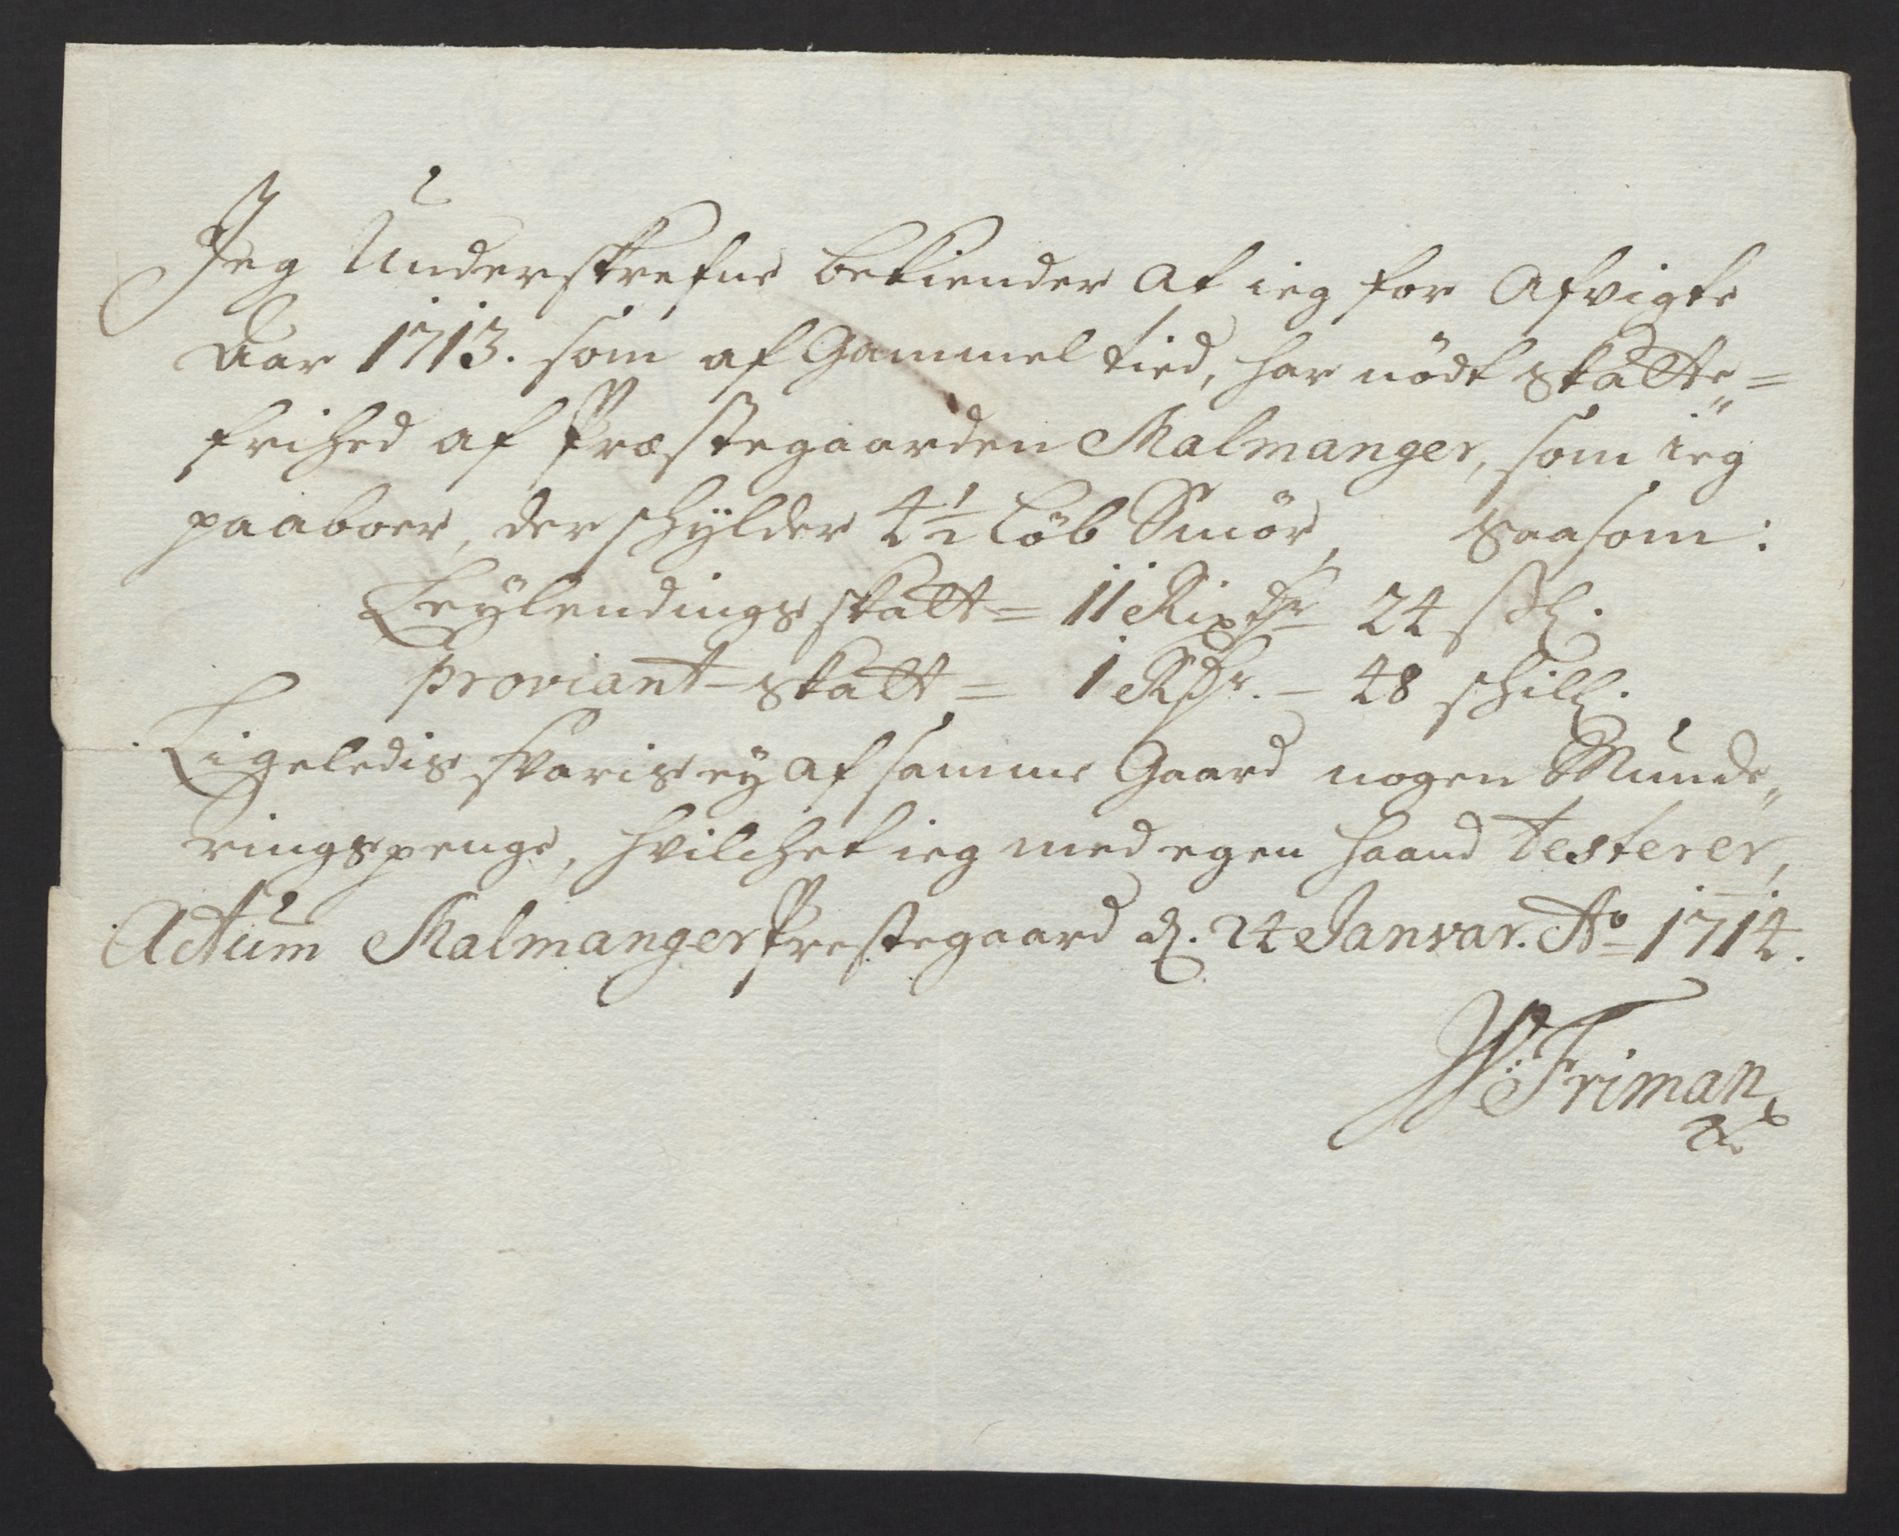 Jeg Underskrefne bekiender at ieg for Afvigte
Aar 1713. som af Gammel tied, har nödt skatte=
frihed af Præstegaarden Malmanger, som ieg
paaboer, der schÿlder 4 1/2 Löb Smör, saasom:
Leÿlendings skatt = 11 Rixdr - 24 sß.
proviant-skatt = 1 Rdr. - 48 schill.
Ligeledis svaris eÿ af samme Gaard nogen Munde„
ringspenge, hvilchet ieg med egen haand testerer,
Actum Malmanger Prestegaard d. 24 Janvar. Ao 1714.
W: Friman